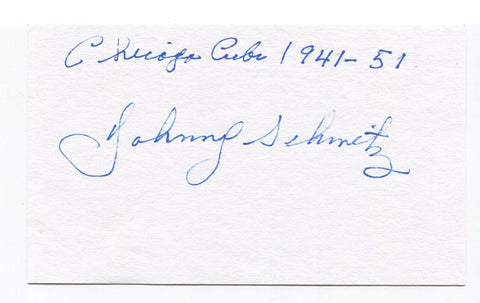 Chicago Cubs 1941-51
Johnny Schmitz